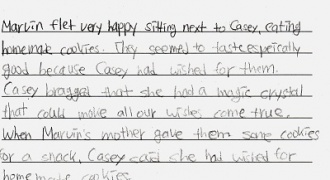 Marvin flet very happy sitting next to Casey, eating
homemade cookies. They seemed to taste espeirally
good because Casey had wished for them.
Casey bragged that she had a magic crystal
that could make all our wishes come true.
When Marvin's mother gave them some cookies
for a snack, Casey said she had wished for
home made cookies